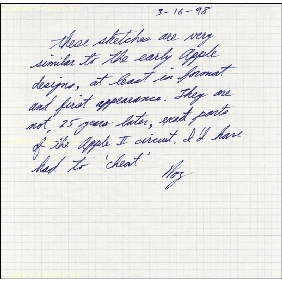 3-16-98
These sketches are very
similar to the early Apple
designs, at least in format
and first appearance. They are
not, 25 years later, exact parts
of the Apple II circuit. I'd have
had to 'cheat'
Woz